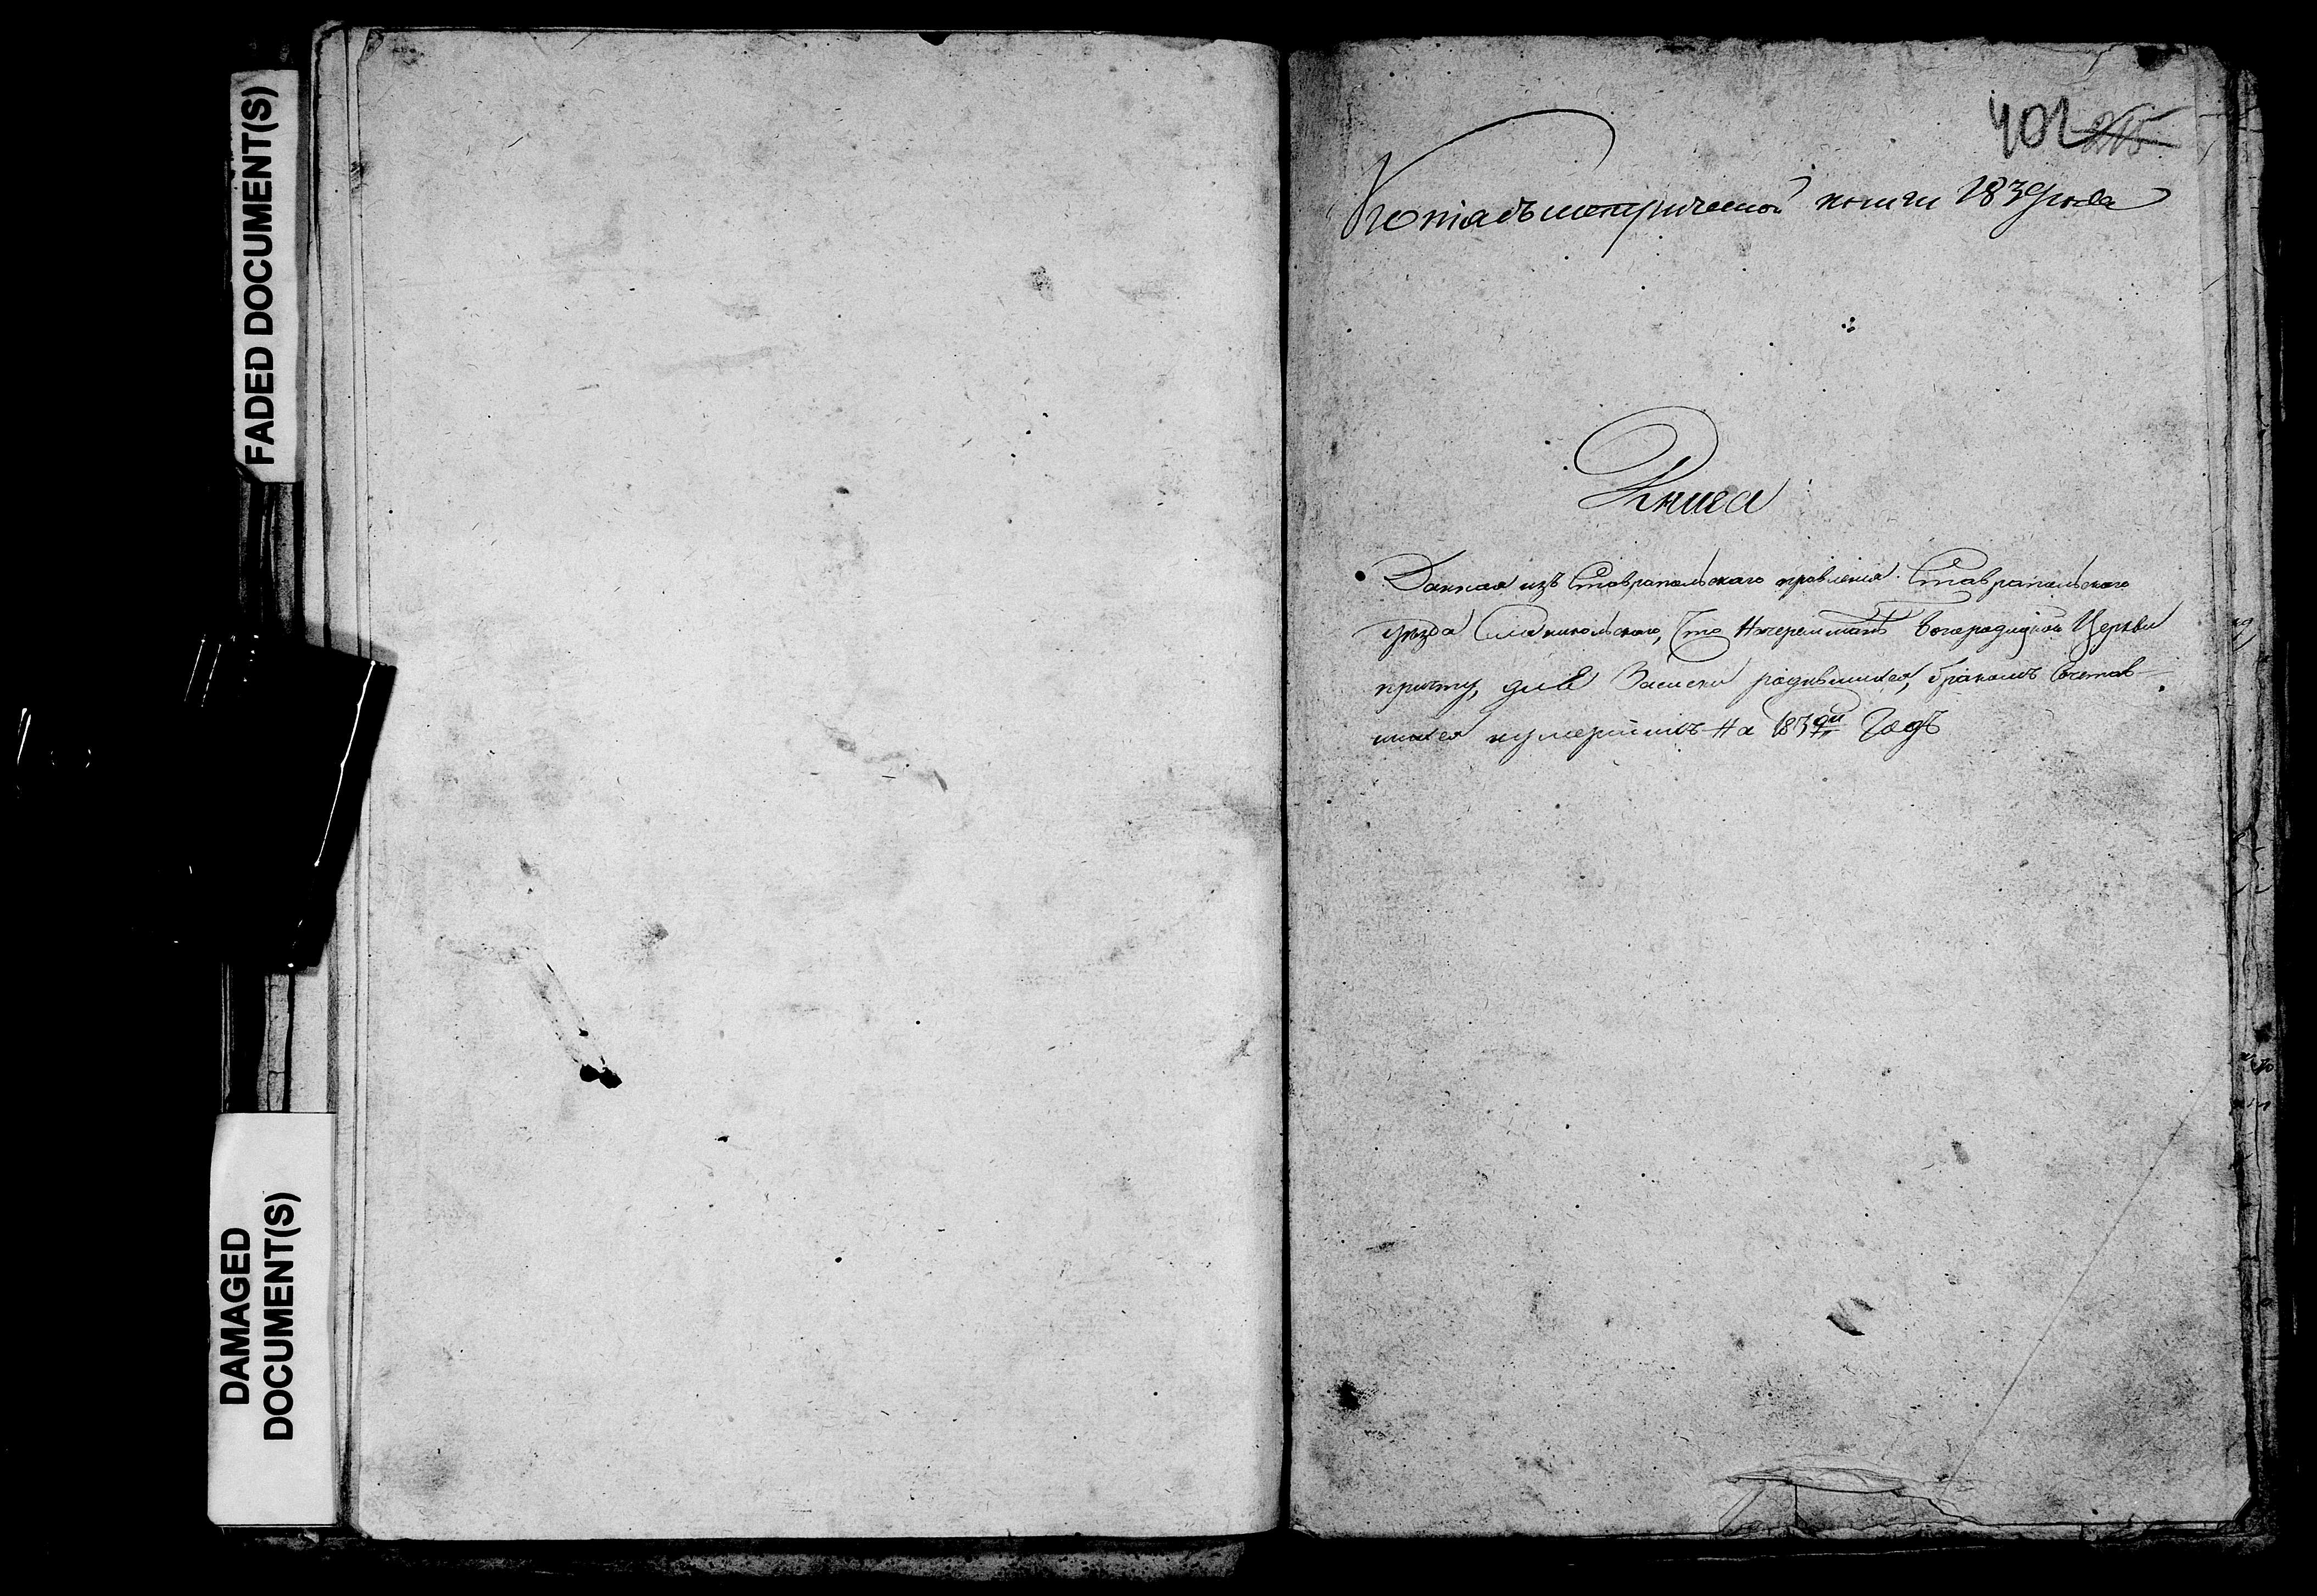 FADED DOCUMENT(S)
DAMAGED
DOCUMENT(S)
402 215
Копія съ метрической книги 1839 года
Книга
Данная изъ Ставрапольскаго правленія Ставрапольскаго
уѣзда Села никольскаго, Что Начеремшанѣ Богородицкой Церкви
причту, для Записки родившихся, бракомъ Сочетав-
шихся иумершихъ На 1839й Годъ